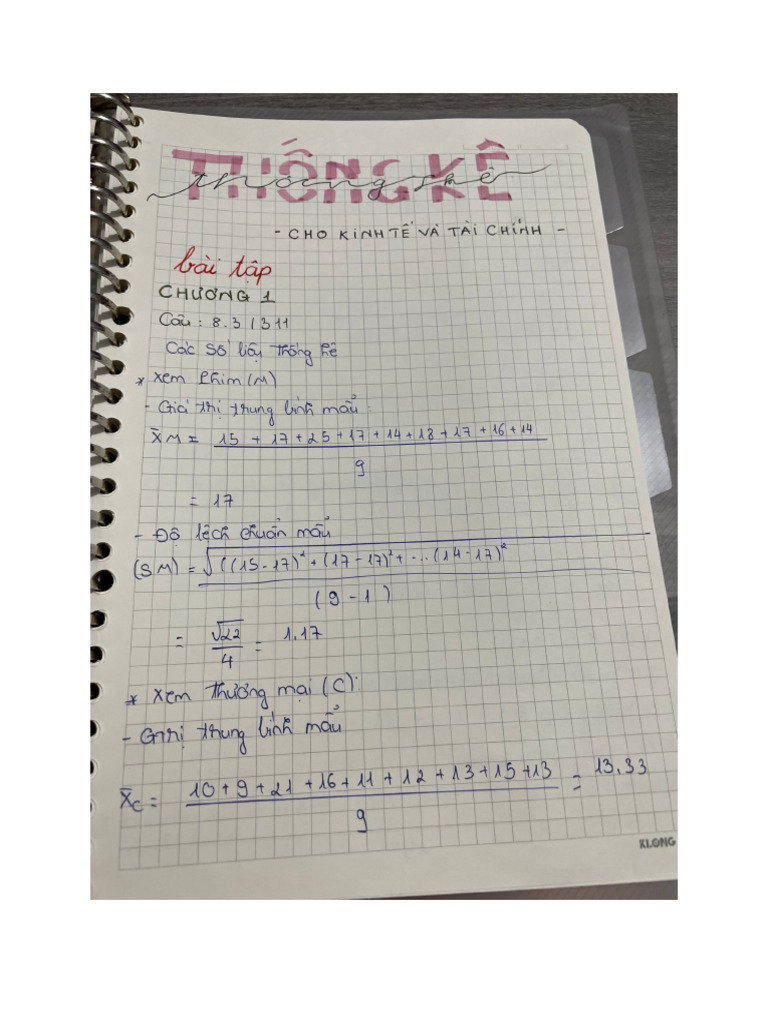 THỐNG KÊ
thống kê
- CHO KINH TẾ VÀ TÀI CHÍNH -
bài tập
CHƯƠNG 1
Câu : 8.3 / 311
Các số liệu thống kê
* Xem Phim (M)
- Giá trị trung bình mẫu :
X̄M = (15 + 17 + 25 + 17 + 14 + 18 + 17 + 16 + 14) / 9
= 17
- Độ lệch chuẩn mẫu
(SM) = √((15-17)² + (17-17)² + ... (14-17)² / (9-1)
= √22 / 4 = 1,17
* Xem thương mại (C):
- Gtrị trung bình mẫu
X̄c = (10 + 9 + 21 + 16 + 11 + 12 + 13 + 15 + 13) / 9 = 13,33
KLONG